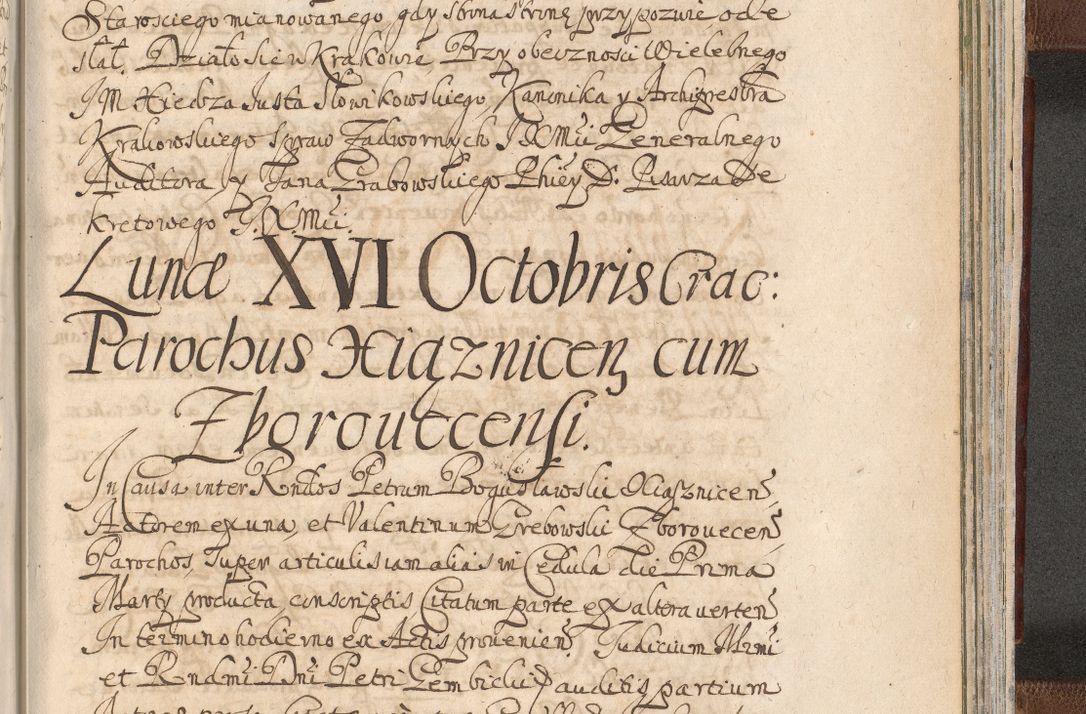 Starosciego mianowanego gdy strona stronę przypozwie ode
słał. Działo sie w Krakowie Przy obecznosci Wielebnego
JM Xiedza Justa Słowikowskiego, Kanonika y Archipresbra
Krakowskiego spraw Zadwornych J X Mći Generalnego
Auditora y Jana Grabowskiego Phiey D. Pisarza De
kretowego J. X Mći.
Lunæ XVI Octobris Crac:
Parochus Xiąznicen cum
Zboroutcensi.
In Causa inter Rndos Petrum Bogusławski Xiąsznicen
Actorem ex una, et Valentinum Grebowski Zborovecen
Parochos, super articulis iam alias in Cedula die Prima
Marty producta conscriptis Citatum parte ex altera verten
In termino hodierno ex Actis provenien. Judicium Illrmi
et Rndmi Dni Petri Gembicki auditis partium